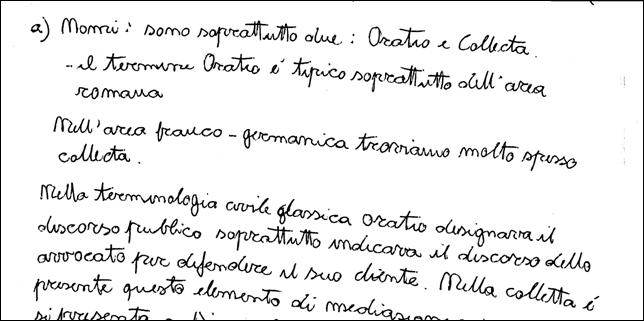 a) Nomi: sono soprattutto due: Oratio e Collecta.
- il termine Oratio é tipico soprattutto dell'area
romana
Nell'area franco-germanica troviamo molto spesso
collecta.
Nella terminologia civile classica oratio designava il
discorso pubblico soprattutto indicava il discorso dello
avvocato per difendere il suo cliente. Nella colletta é
presente questo elemento di mediazione
si presenta